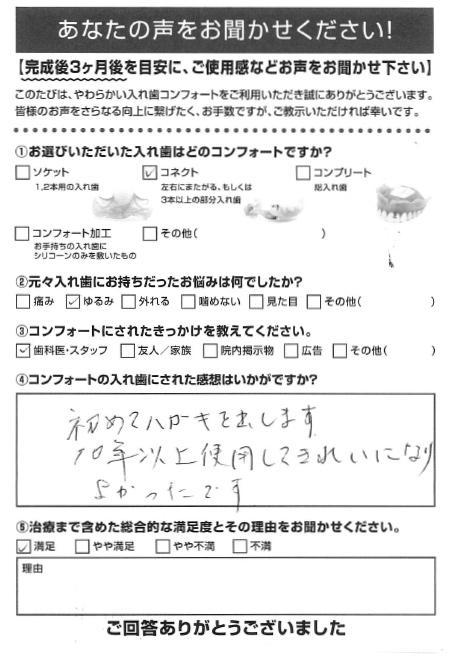 あなたの声をお聞かせください!
【完成後3ヶ月後を目安に、ご使用感などお声をお聞かせ下さい】
このたびは、やわらかい入れ歯コンフォートをご利用いただき誠にありがとうございます。
皆様のお声をさらなる向上に繋げたく、お手数ですが、ご教示いただければ幸いです。
①お選びいただいた入れ歯はどのコンフォートですか?
□ソケット ☑コネクト □コンプリート
1,2本用の入れ歯 左右にまたがる、もしくは 総入れ歯
3本以上の部分入れ歯
□コンフォート加工 □その他( )
お手持ちの入れ歯に
シリコーンのみを敷いたもの
②元々入れ歯にお持ちだったお悩みは何でしたか?
□痛み ☑ゆるみ □外れる □噛めない □見た目 □その他( )
③コンフォートにされたきっかけを教えてください。
☑歯科医・スタッフ □友人/家族 □院内掲示物 □広告 □その他( )
④コンフォートの入れ歯にされた感想はいかがですか?
初めてハガキを出します
10年以上使用してきれいになり
よかったです
⑤治療まで含めた総合的な満足度とその理由をお聞かせください。
☑満足 □やや満足 □やや不満 □不満
理由
ご回答ありがとうございました